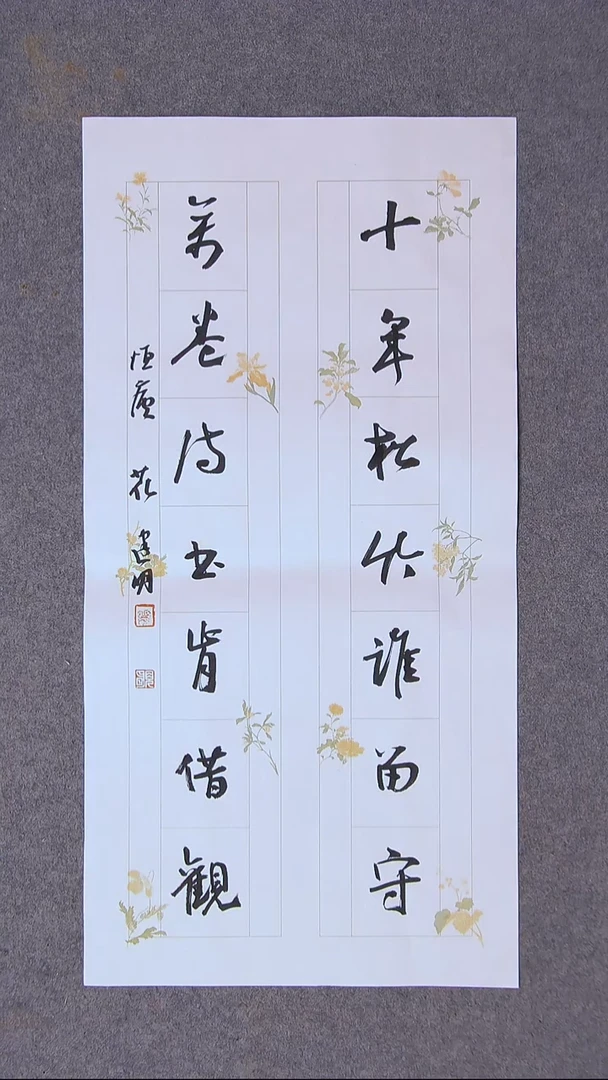 十年松竹誰留守
萬卷詩書肯借觀
恒廬 花建明